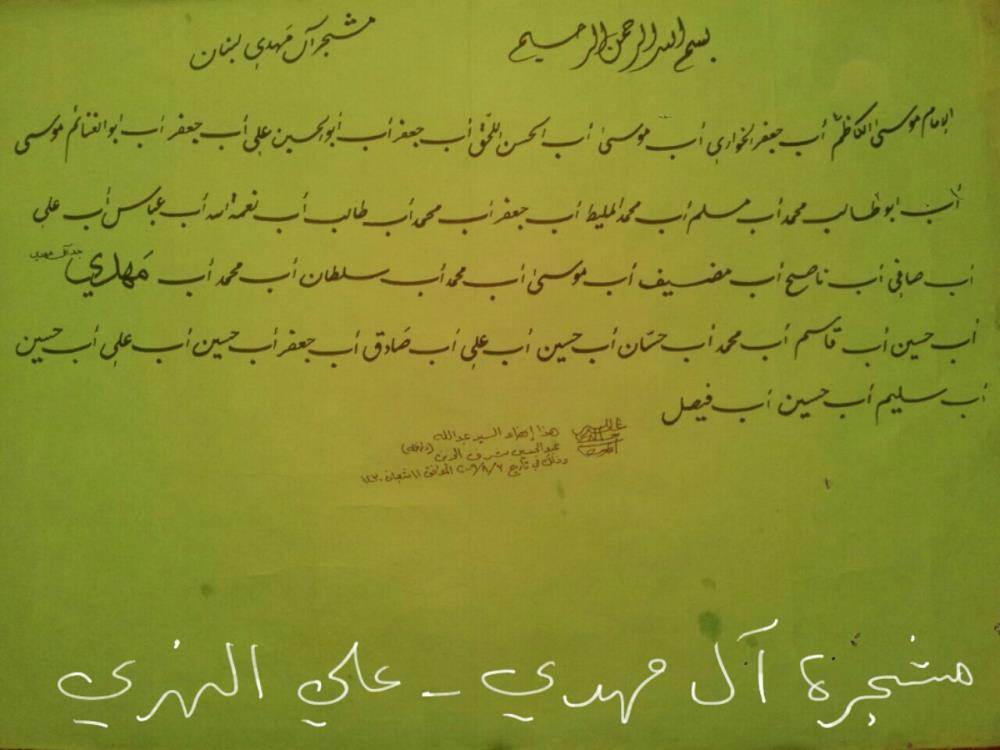 بسم الله الرحمن الرحيم
مشجر آل مَهدي لبنان
الإمام موسى الكاظم أب جعفر الخواري أب موسى أب الحسن اللحق أب جعفر أب أبو الحسين علي أب جعفر أب ابو الغنائم موسى
أب ابو طالب محمد أب مسلم أب محمد المليط أب جعفر أب محمد أب طالب أب نعمة الله أب عباس أب علي
أب صافي أب ناصح أب مضيف أب موسى أب محمد أب سلطان أب محمد أب مَهدي جد آل مهدي
أب حسين أب قاسم أب محمد أب حسّان أب حسين أب علي أب صَادق أب جعفر أب حسين أب علي أب حسين
أب سليم أب حسين أب فيصل
هذا إهداء السيد عبدالله
عبدالحسين شرف الدين
وذلك في تاريخ ٢٠٠٩/٨/٢ الموافق ١١ شعبان ١٤٣٠
مشجرة آل مهدي - علي النهري